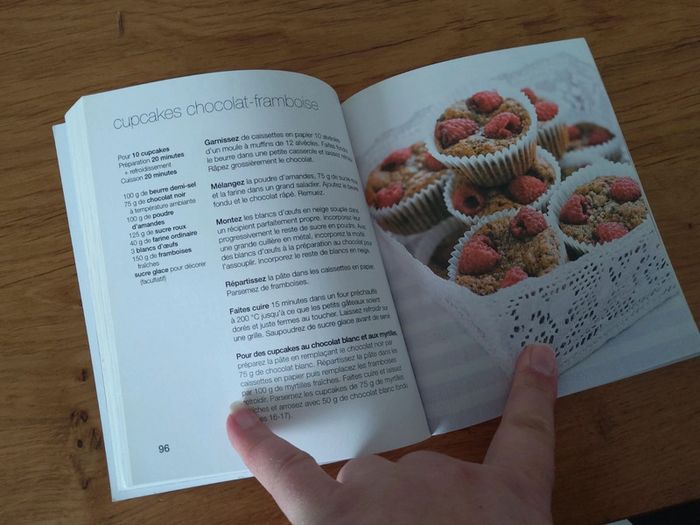 cupcakes chocolat-framboise
Pour 10 cupcakes
Préparation 20 minutes
+ refroidissement
Cuisson 20 minutes
100 g de beurre demi-sel
75 g de chocolat noir
à température ambiante
100 g de poudre
d'amandes
125 g de sucre roux
40 g de farine ordinaire
3 blancs d'œufs
150 g de framboises
fraîches
sucre glace pour décorer
(facultatif)
Garnissez de caissettes en papier 10 alvéoles
d'un moule à muffins de 12 alvéoles. Faites fondre
le beurre dans une petite casserole et laissez refroidir.
Râpez grossièrement le chocolat.
Mélangez la poudre d'amandes, 75 g de sucre
et la farine dans un grand saladier. Ajoutez le beurre
fondu et le chocolat râpé. Remuez.
Montez les blancs d'œufs en neige souple dans
un récipient parfaitement propre. Incorporez-leur
progressivement le reste de sucre en poudre. Avec
une grande cuillère en métal, incorporez la moitié
des blancs d'œufs à la préparation au chocolat pour
l'assouplir. Incorporez le reste de blancs en neige.
Répartissez la pâte dans les caissettes en papier.
Parsemez de framboises.
Faites cuire 15 minutes dans un four préchauffé
à 200 °C jusqu'à ce que les petits gâteaux soient
dorés et juste fermes au toucher. Laissez refroidir sur
une grille. Saupoudrez de sucre glace avant de servir.
Pour des cupcakes au chocolat blanc et aux myrtilles,
préparez la pâte en remplaçant le chocolat noir par
75 g de chocolat blanc. Répartissez la pâte dans les
caissettes en papier puis remplacez les framboises
par 100 g de myrtilles fraîches. Faites cuire et laissez
refroidir. Parsemez les cupcakes de 75 g de myrtilles
fraîches et arrosez avec 50 g de chocolat blanc fondu
16-17).
96